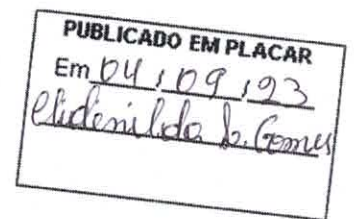 PUBLICADO EM PLACAR
Em 04 / 09 / 23
Elidenilda L. Gomes